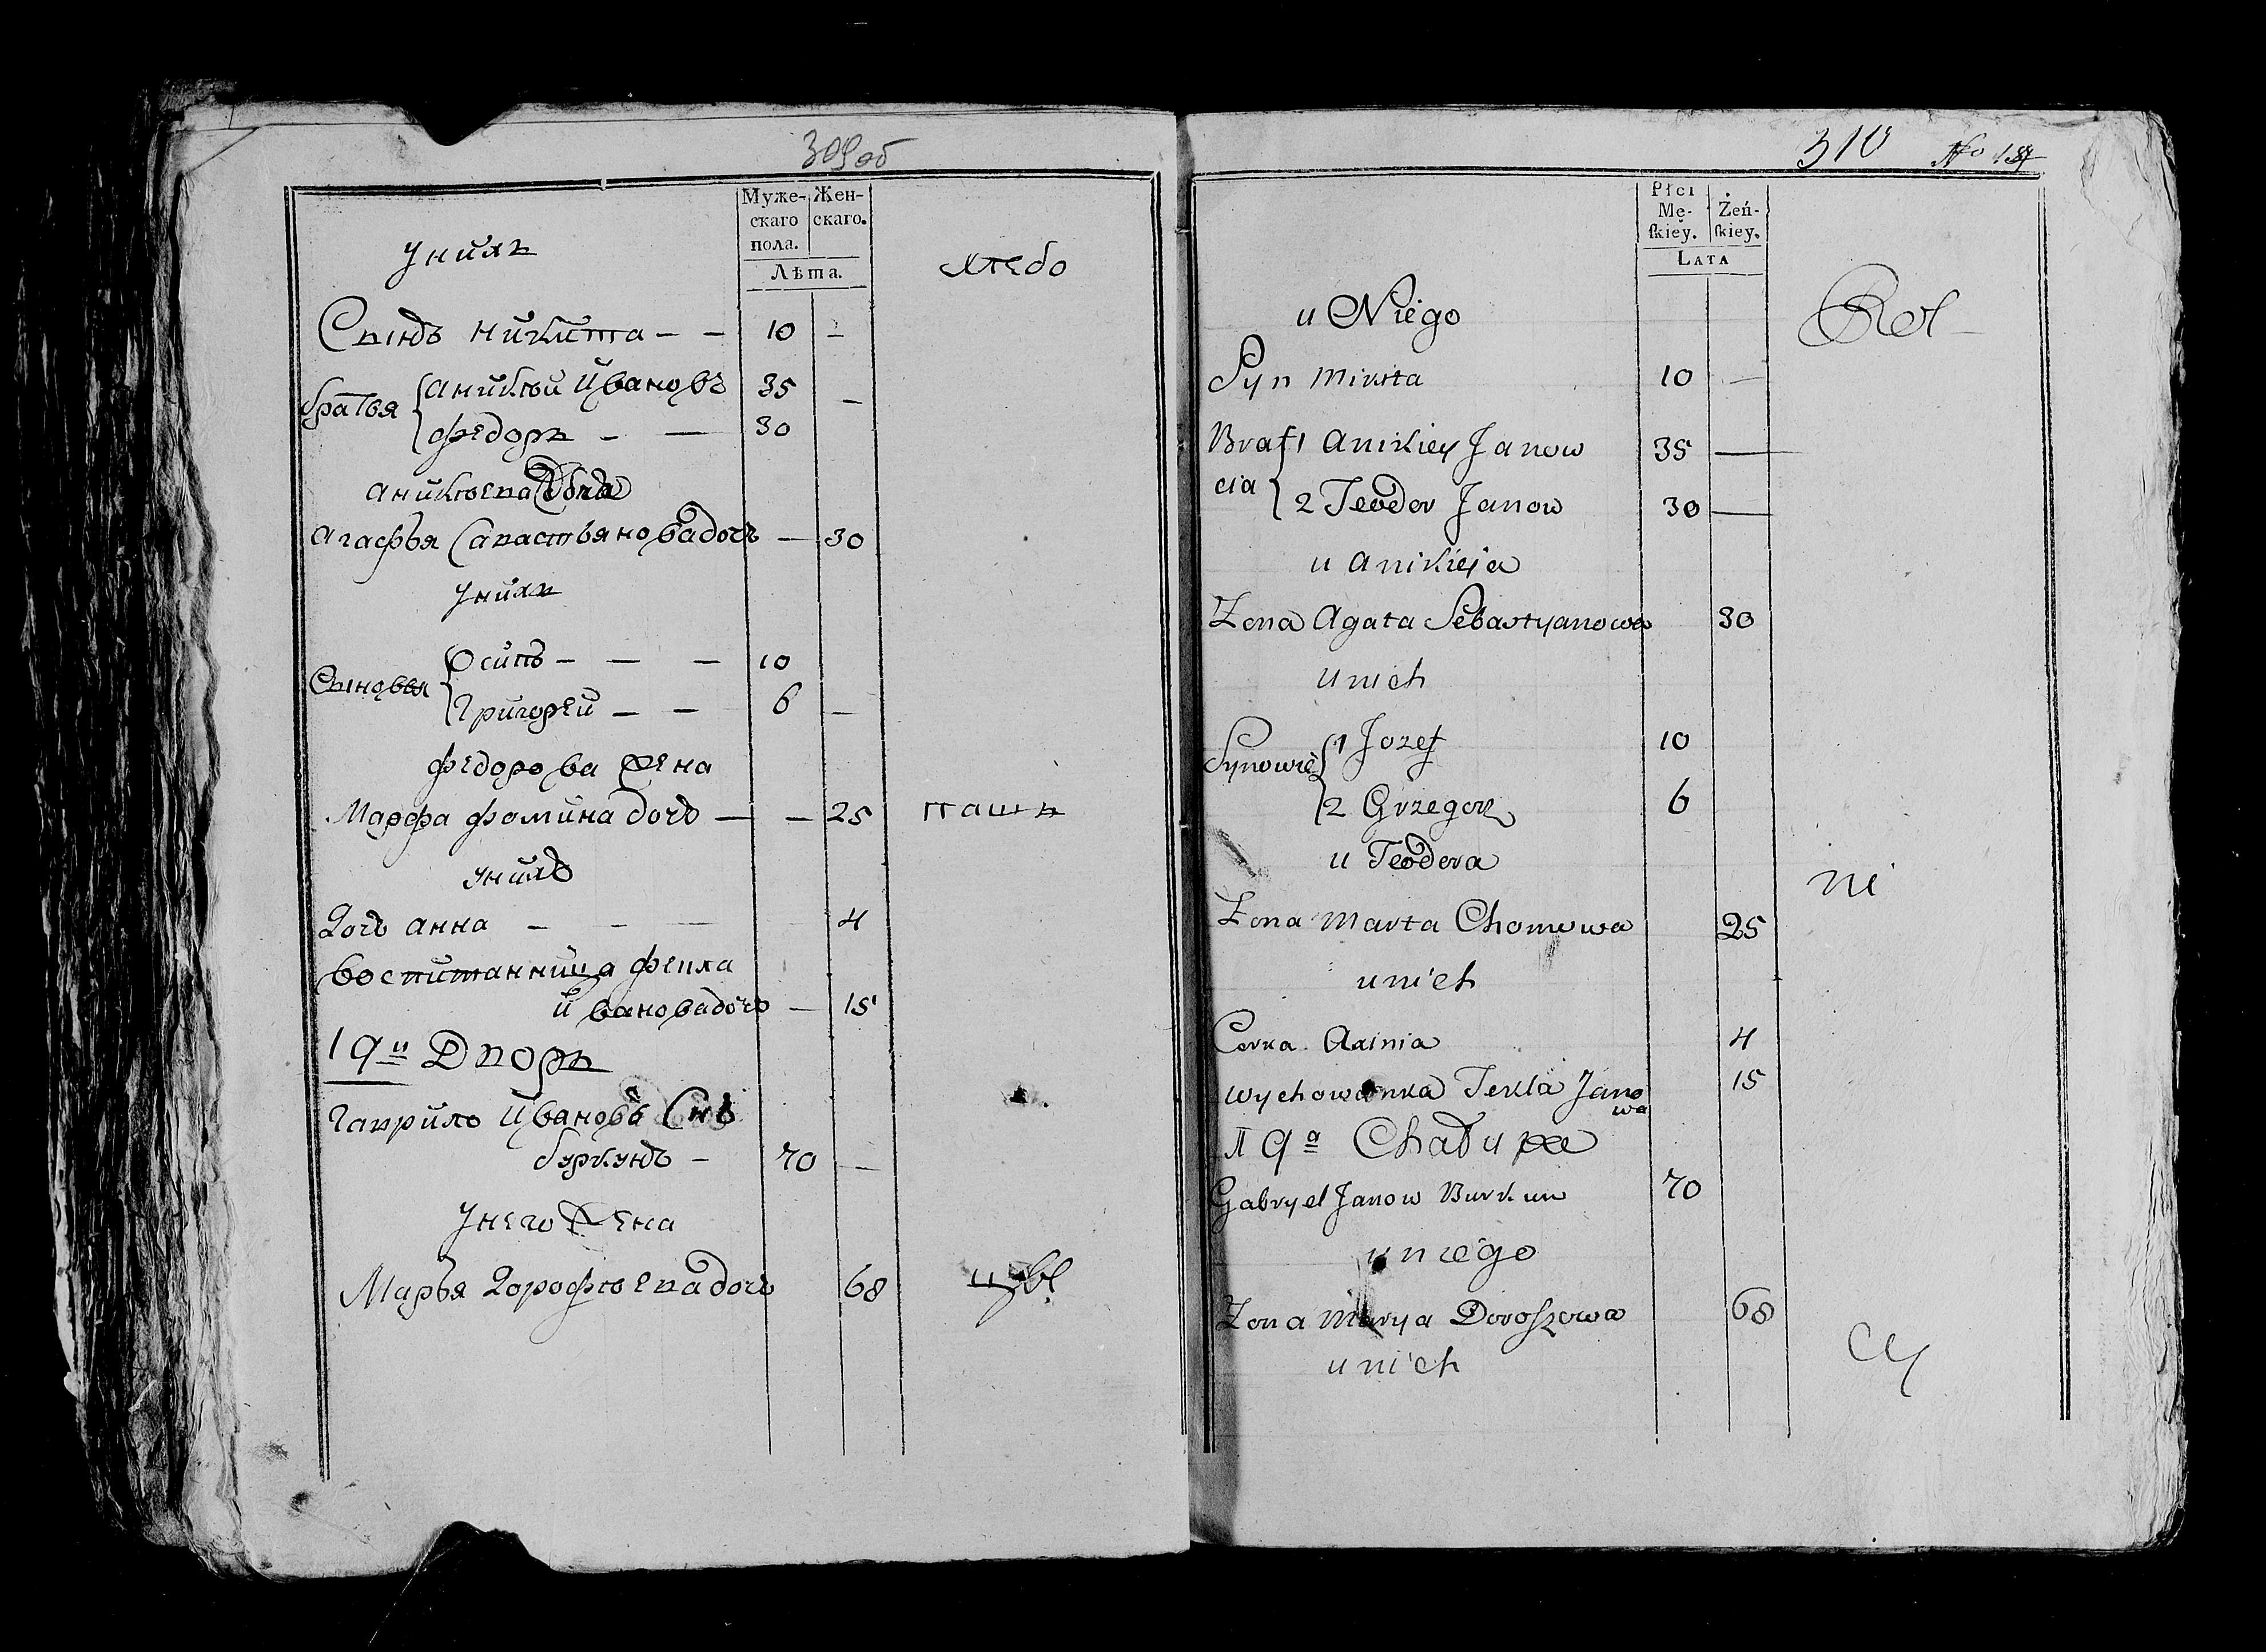 309 об
Муже-
скаго
пола.
Жен-
скаго.
Лѣта.
Унихъ
хлебо
Сынъ Никита — — 10 —
братья
Аникѣй Ивановъ 35 —
Федоръ — — 30
Аникѣева Жена
Агафья Савастьянова дочь — 30
Унихъ
Сыновья
Осипъ — — — 10
Григорей — — 6 —
Федорова Жена
Марфа Фомина дочь — — 25
пашъ
Унихъ
Дочь Анна — — — 4
воспитанница Фекла
Иванова дочь — 15
19й Дворъ
Гаврило Ивановъ Снъ
буркунъ — 70 —
Унего Жена
Марья Дорофѣева дочь 68
310 No
Płci
Mę-
ſkiey.
Żeń-
ſkiey.
Lata
u Niego
Rol
Syn Mikita 10 —
Bra
cia
1 Anikiey Janow 35 —
2 Teodor Janow 30 —
u Anikieja
Zona Agata Sebastyanowa 30
u nich
Synowie
1 Jozef 10
2 Grzegorz 6
u Teodora
ni
Zona Marta Chomowa 25
u nich
Corka Axinia 4
wychowanka Tekla Jano
wa 15
19a Chałupa
Gabryel Janow Burkun 70
u niego
Zona Marya Doroszowa 68
u nich
cy